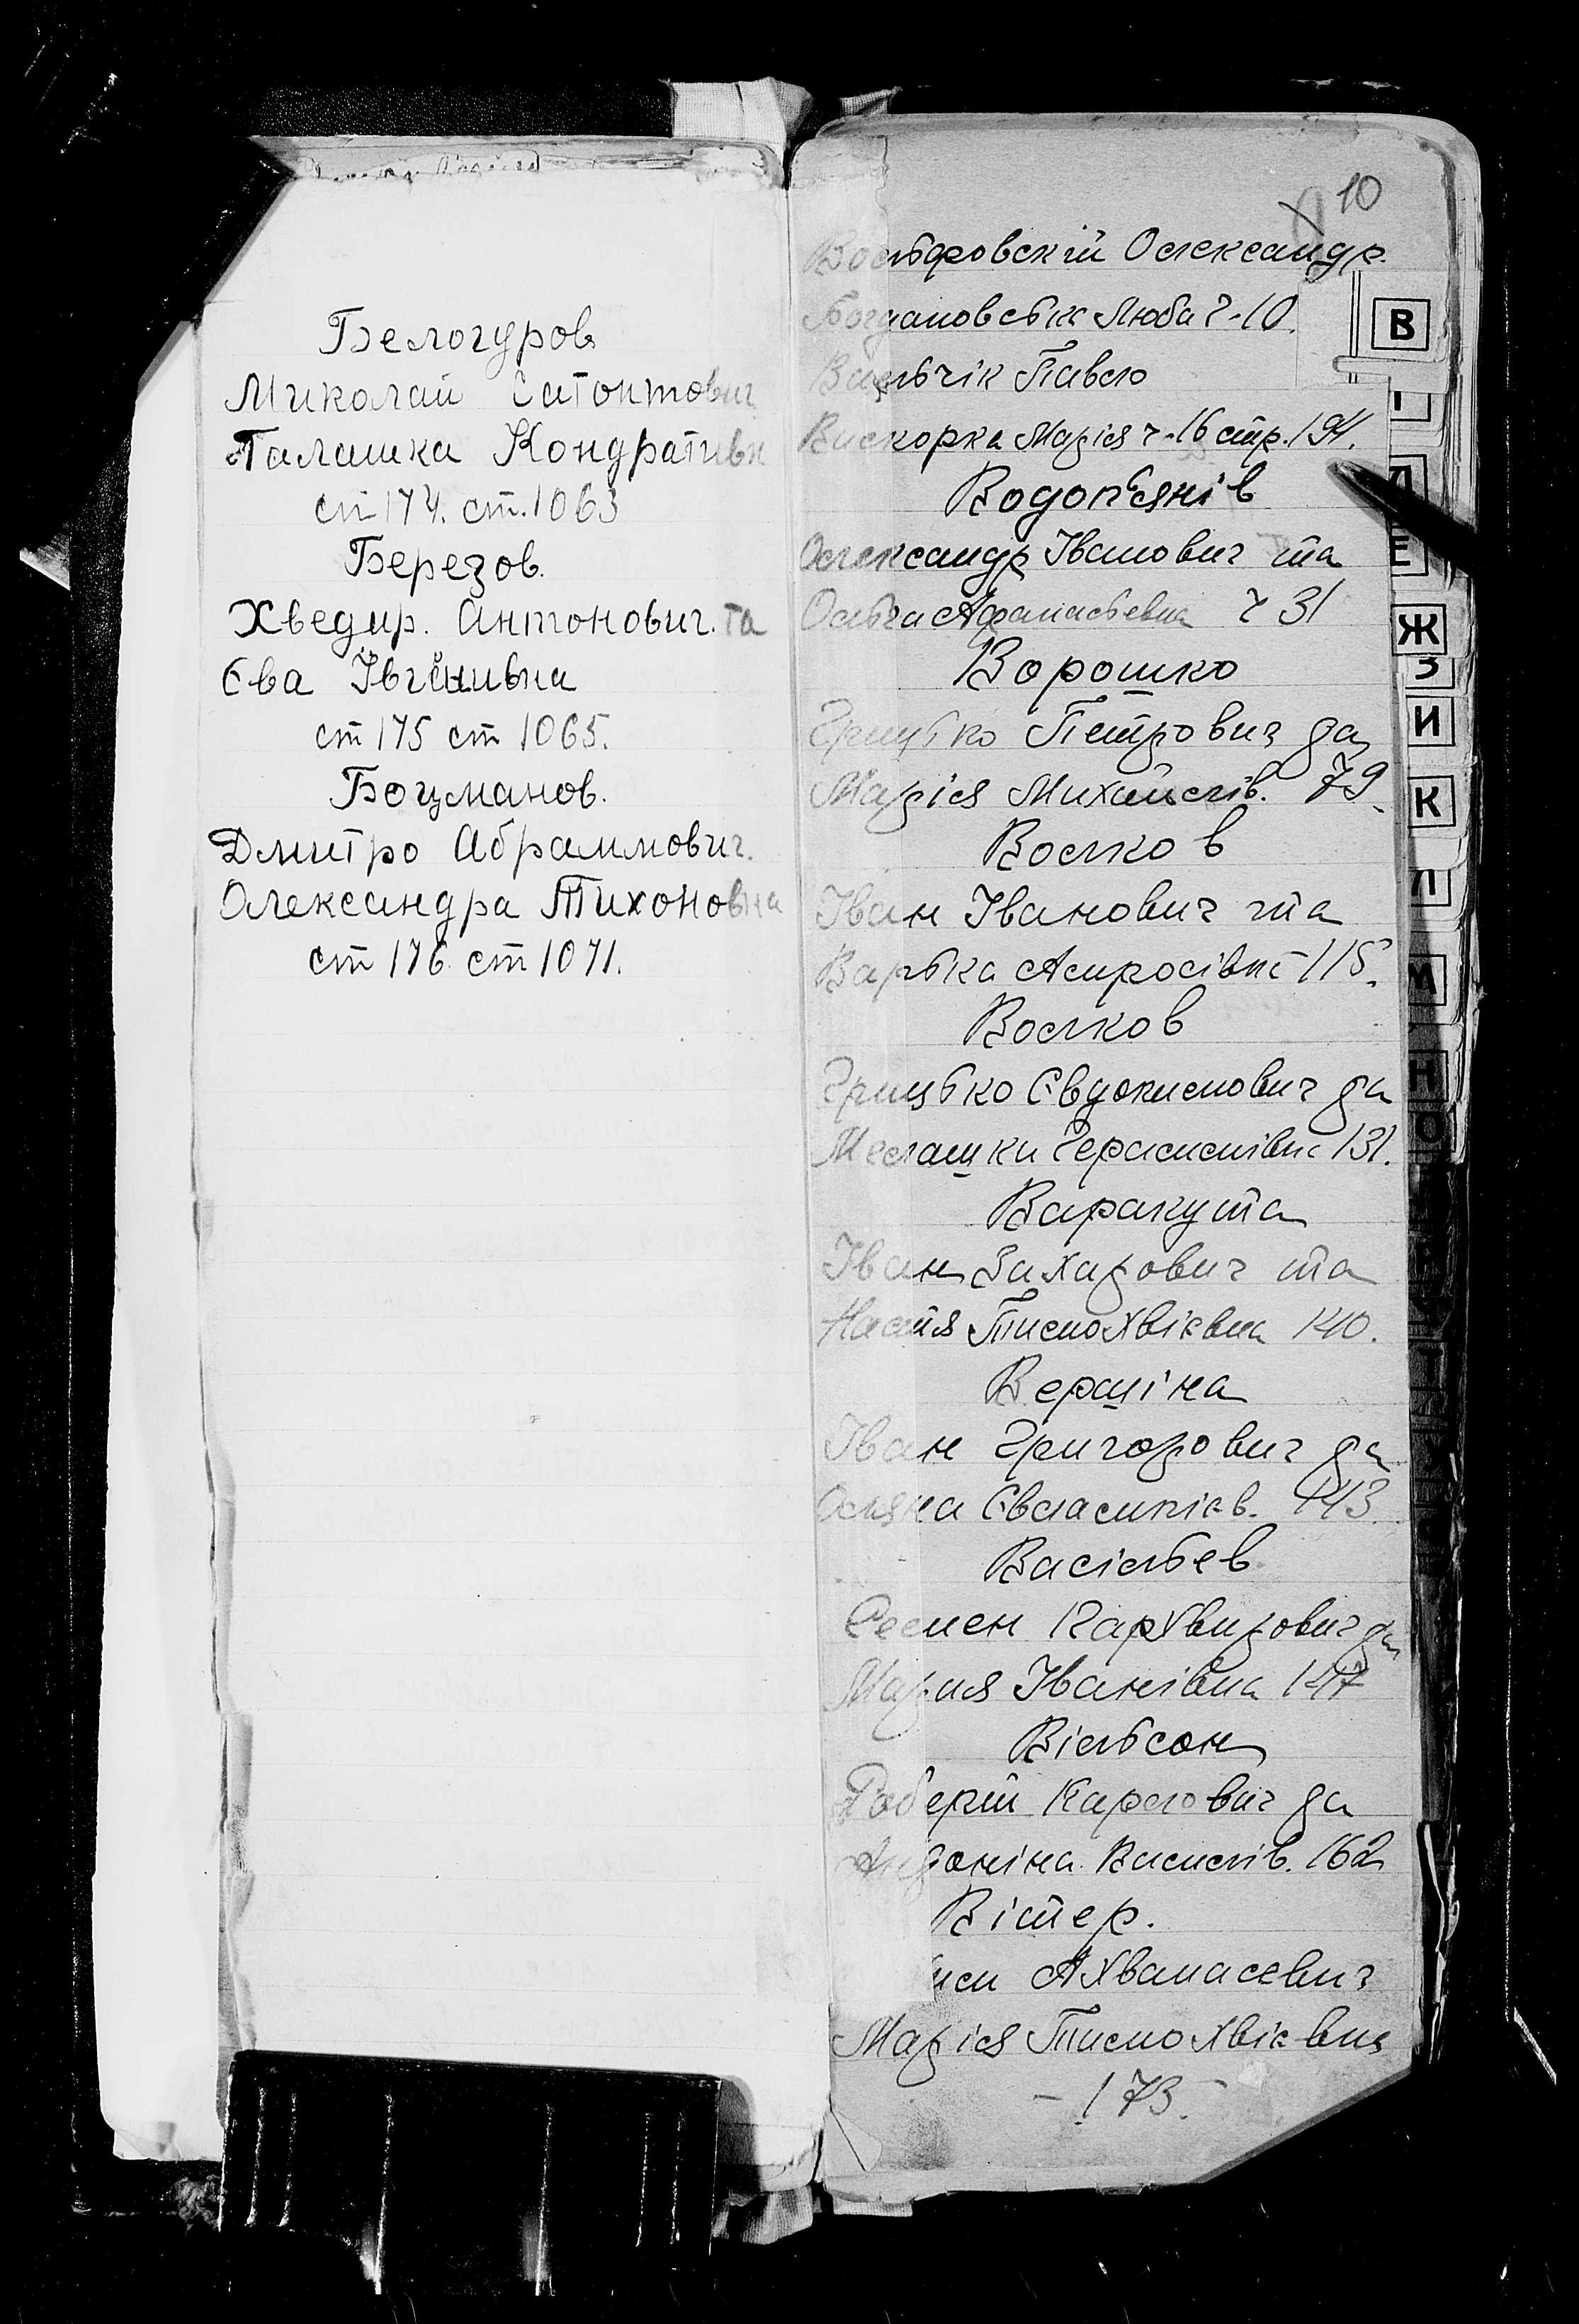 Бєлогуров
Миколай Сатонтович
Палашка Кондративн
ст 174. ст. 1063
Березов.
Хведир. Антонович. та
Єва Івгєнивна
ст 175 ст 1065.
Боцманов.
Дмитро Абраммович.
Олександра Тихоновна
ст 176. ст 1071.
10
Вольфровскій Олександр.
Богдановська Люба ч-10.
Вальчік Павло
Вискорка Марія ч-16 стр. 194.
Водоп'янів
Олександр Іванович та
Ольга Афанасьевна ч 31
Ворошко
Грицько Петрович да
Марія Михайлів. 79
Волков
Іван Іванович та
Варька Амросівна 115.
Волков
Грицько Євдокимович да
Мелашки Герасимівна 131.
Варакута
Іван Захарович та
Настя Тимохвіївна 140.
Вершіна
Іван Григорович да
Оляна Євлампієв. 143.
Васільев
Семен Пархвирович да
Мария Іванівна 147
Вільсон
Роберт Карлович да
Андоніна Василів. 162
Вітер.
Ахванасевич
Марія Тимохвіївна
- 173. -
В
Д
Е
Ж
З
И
К
Л
М
Н
О
Т